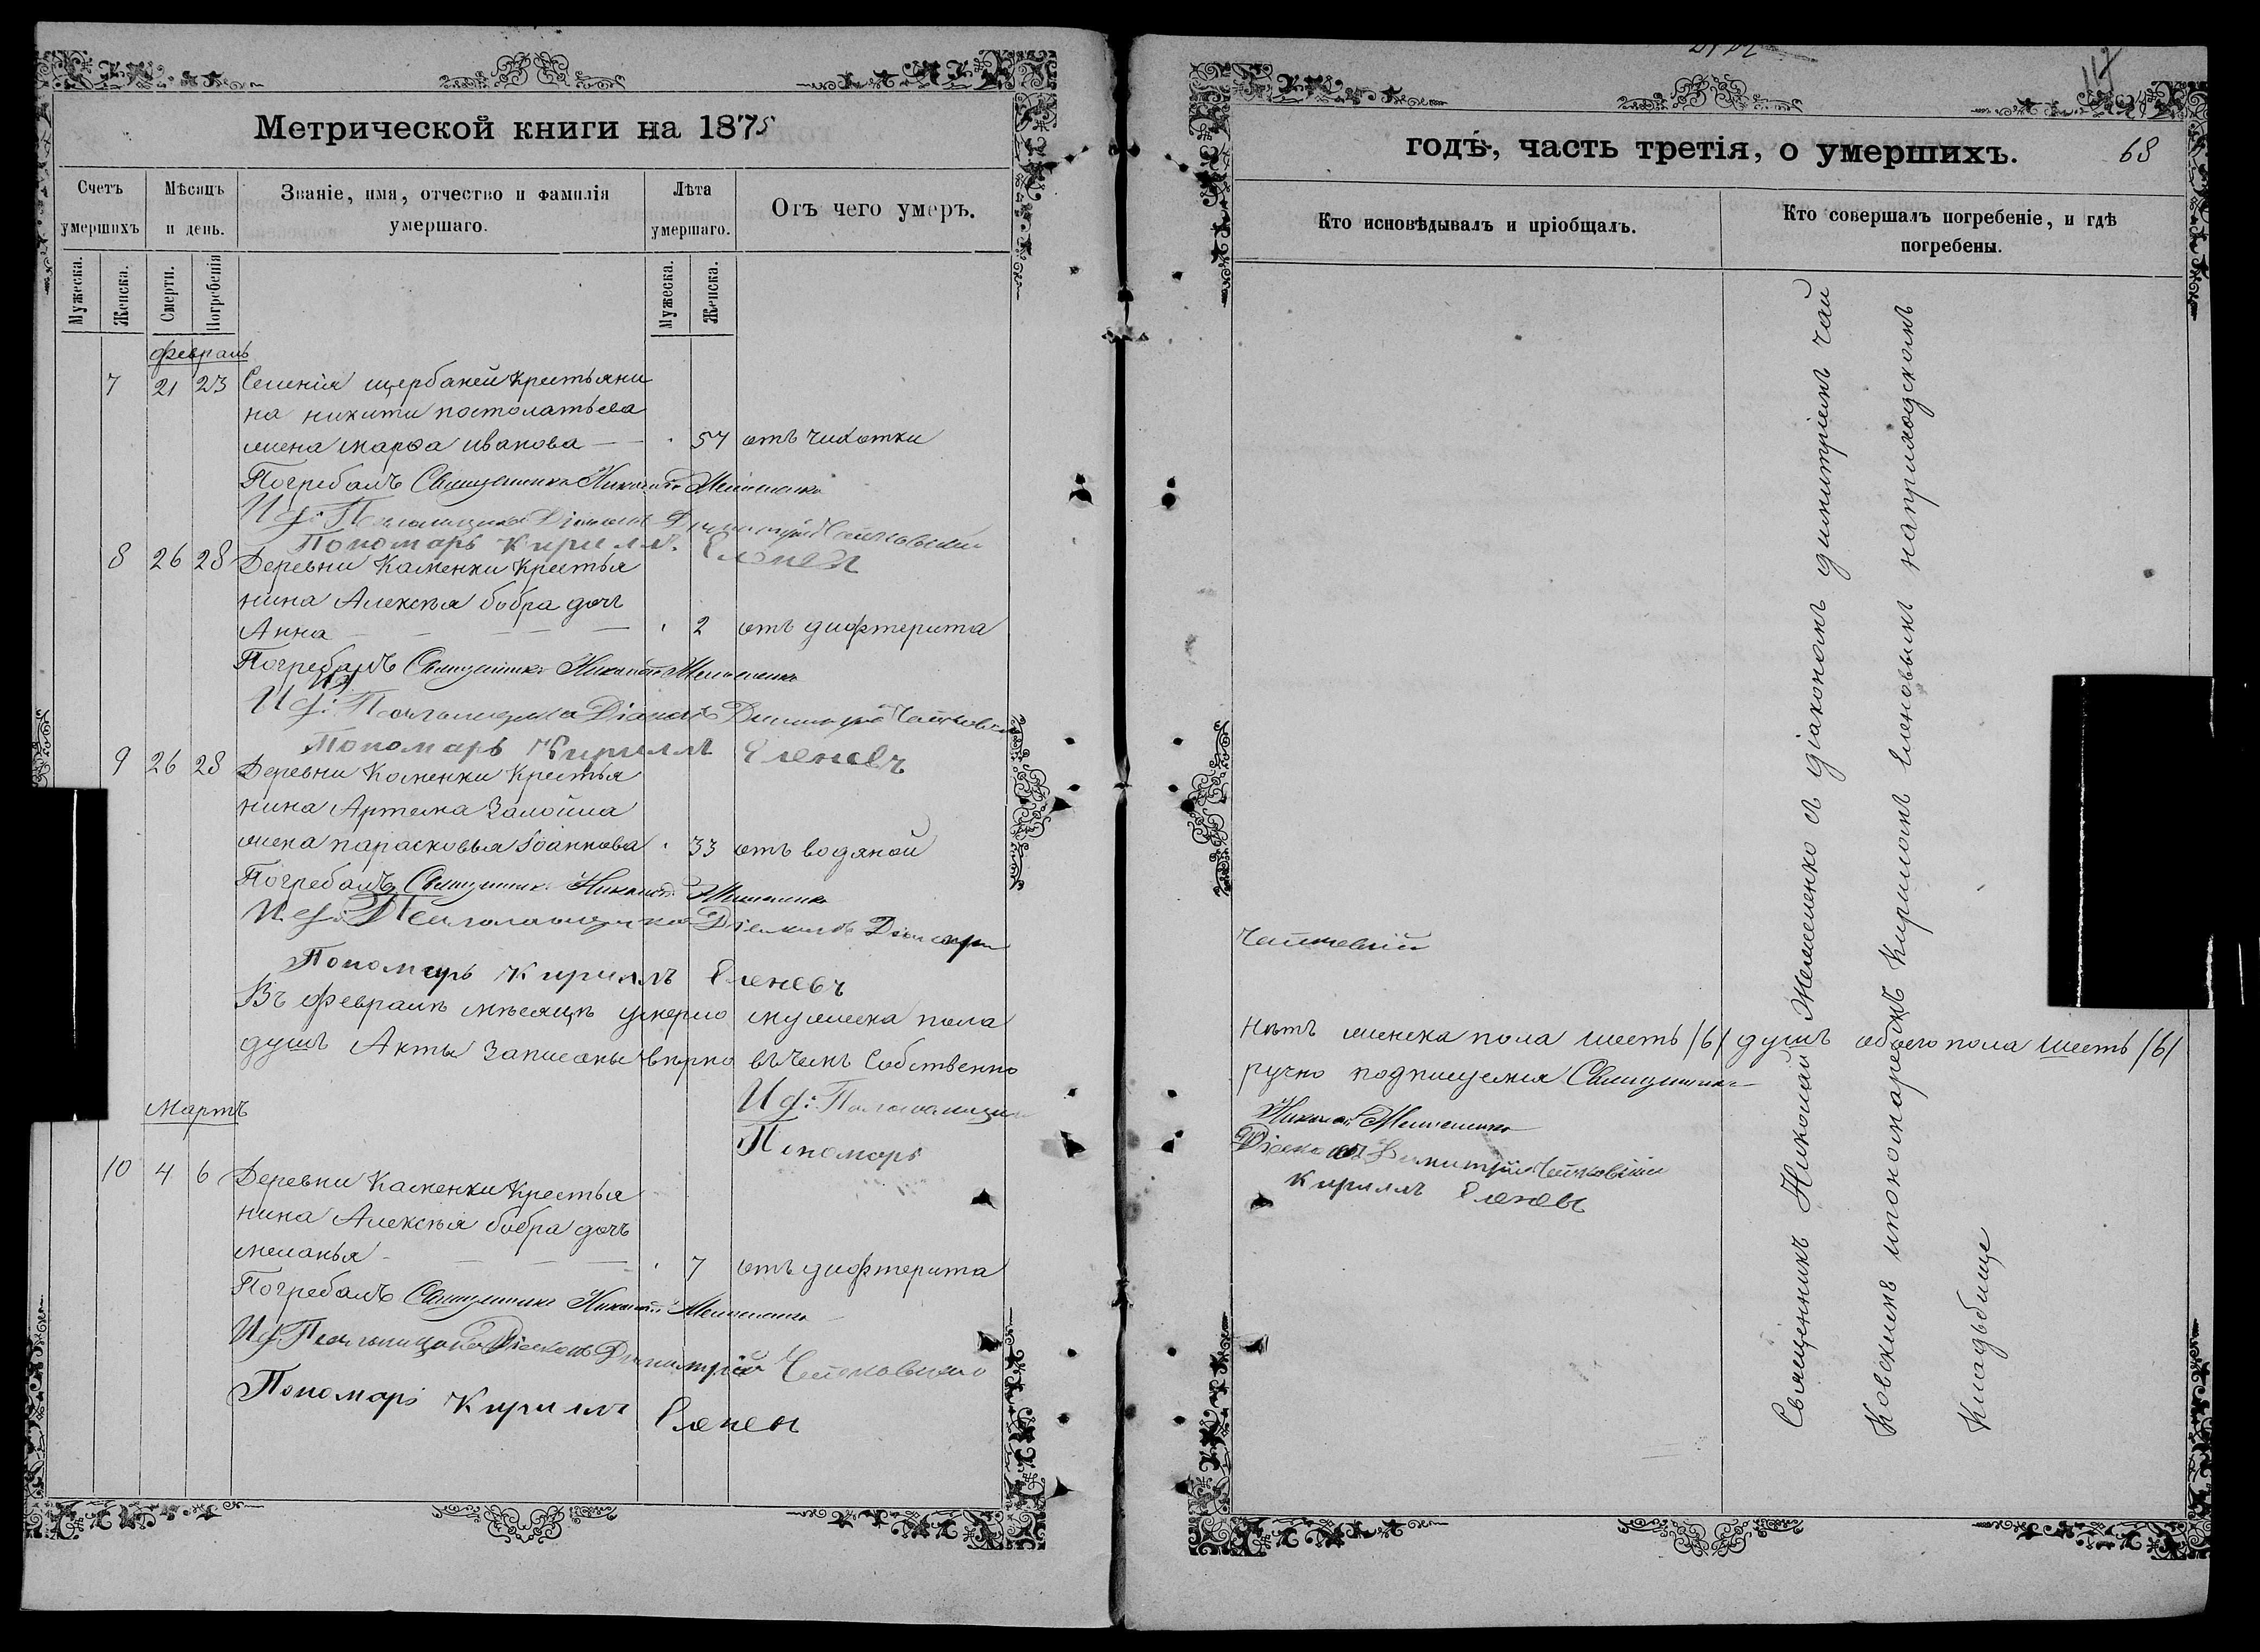 117
Метрической книги на 1875
годѣ, часть третія, о умершихъ.
68
Счетъ умершихъ
Мѣсяцъ и день.
Званіе, имя, отчество и фамилія умершаго.
Лѣта умершаго.
Отъ чего умеръ.
Кто исповѣдывалъ и пріобщалъ.
Кто совершалъ погребеніе, и гдѣ погребены.
Мужеска.
Женска.
Смерти.
Погребенія
Мужеска.
Женска.
Февраль
7 21 23 Селенія щербаней Крестьяни
на никити постолатьева
жена марфа иванова 57 отъ чихотки
Погребалъ Священникъ Николай Желеменко
И д: Псаломщика Діаконъ Димитрій Чайковскій
Пономарь Кириллъ Еленев
8 26 28 Деревни Каменки Крестья
нина Алексѣя бобра дочь
Анна 2 отъ дифтерита
Погребалъ Священникъ Николай Желеменко
И д: Псаломщика Діаконъ Димитрій Чайковскій
Пономарь Кириллъ Еленевъ
9 26 28 Деревни Каменки Крестья
нина Артема Заломиа
жена парасковья Іоаннова 33 отъ водяной
Погребалъ Священникъ Николай Желеменко
И д: Псаломщика Діаконъ Димитри
Чайковскій
Пономарь Кириллъ Еленевъ
Въ февралѣ мѣсяцѣ умерло мужеска пола
нѣтъ женска пола шесть /6/ душъ обоего пола шесть /6/
душъ Акты записаны вѣрно въ чемъ Собственно
ручно подписуемся Священникъ
Николай Желеменко
И д: Псаломщика
Діаконъ Димитрій Чайковскій
Пономарь
Кириллъ Еленевъ
Мартъ
10 4 6 Деревни Каменки Крестья
нина Алексѣя бобра дочь
меланья 7 отъ дифтерита
Погребалъ Священникъ Николай Желеменко
И д. Псаломщика Діаконъ Димитрій Чайковский
Пономарь Кириллъ Еленев
Священникъ Николай Желеменко съ діакономъ димитріемъ Чай
ковскимъ и пономаремъ Кирилломъ Еленовымъ на приходскомъ
Кладьбище